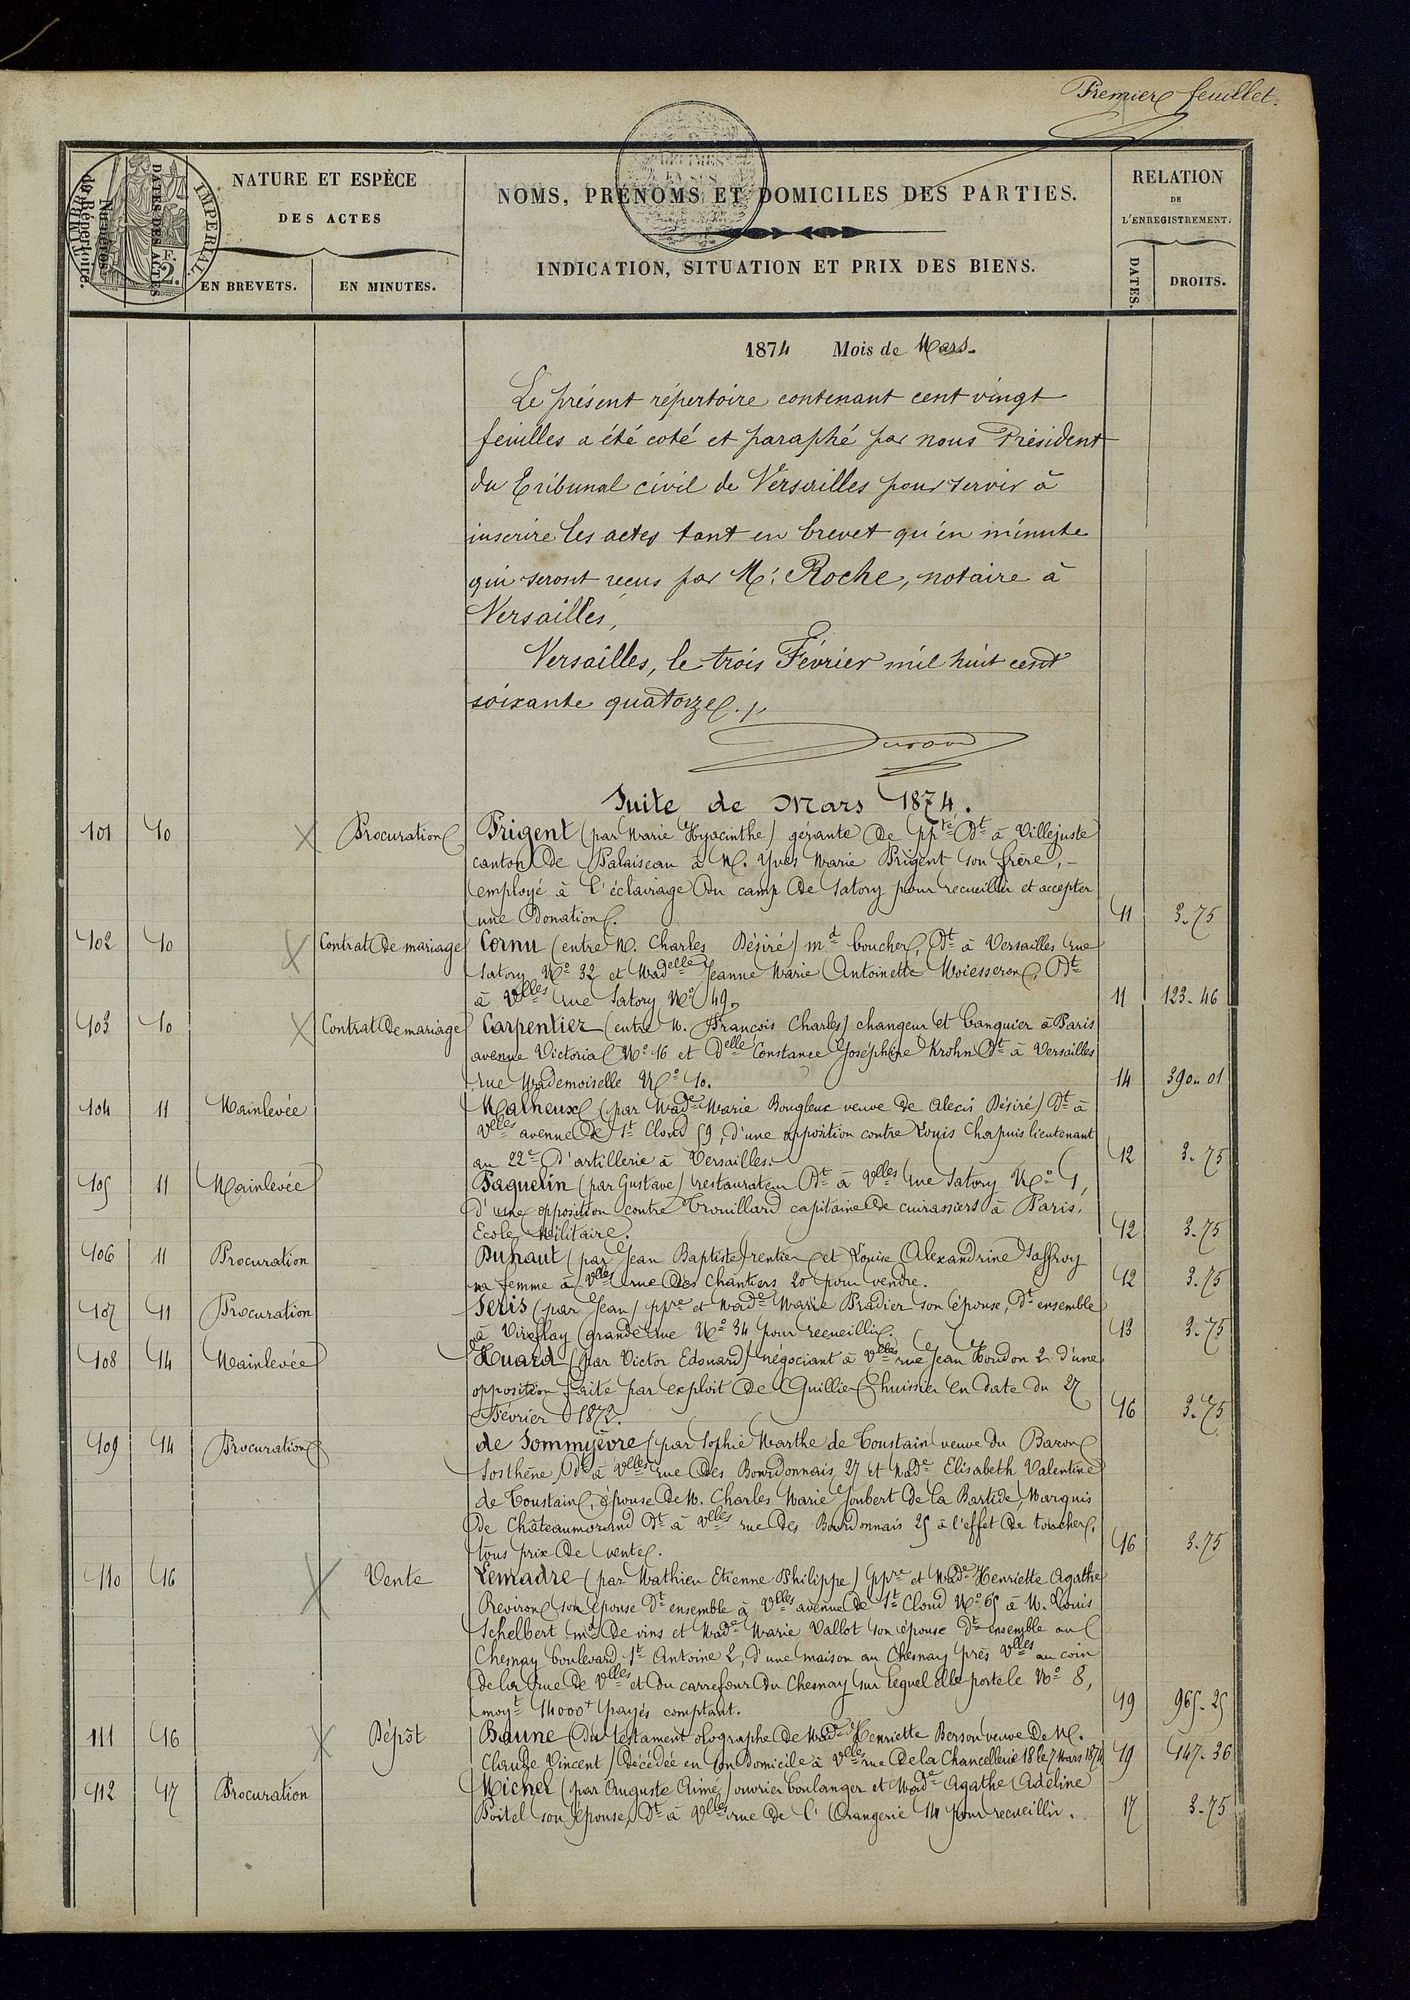 Premier feuillet.
Numéros du Répertoire.
DATES DES ACTES
NATURE ET ESPÈCE
DES ACTES
EN BREVETS.
EN MINUTES.
NOMS, PRÉNOMS ET DOMICILES DES PARTIES.
INDICATION, SITUATION ET PRIX DES BIENS.
RELATION
DE
L'ENREGISTREMENT.
DATES.
DROITS.
IMPERIAL
F.
2.
1874 Mois de Mars.
Le présent répertoire contenant cent vingt
feuilles a été coté et paraphé par nous Président
du Tribunal civil de Versailles pour servir à
inscrire les actes tant en brevet qu'en minute
qui seront reçus par Me. Roche, notaire à
Versailles,
Versailles, le trois Février mil huit cent
soixante quatorze.
Suite de Mars 1874.
101 10 Procuration Prigent (par Marie Hyacinthe) gérante de ppté Dt à Villejuste
canton de Palaiseau à M. Yves Marie Prigent son frère,
employé à l'éclairage du camp de Satory pour recueillir et accepter
une Donation. 11 3-75
102 10 Contrat de mariage Cornu (entre M. Charles Désiré) md boucher, Dt à Versailles rue
Satory No 32 et Madelle Jeanne Marie Antoinette Moiesseron, Dt
à Vlles rue Satory No 49. 11 123-46
103 10 Contrat de mariage Carpentier (entre M. François Charles) changeur et banquier à Paris
avenue Victoria No 16 et Delle Constance Joséphine Krohn Dt à Versailles
rue Mademoiselle No 10. 14 390-01
104 11 Mainlevée Malneux (par Made Marie Bougleux veuve de Alexis Désiré) Dt à
Vlles avenue de St Cloud 59, d'une opposition contre Louis Chapuis lieutenant
au 22e d'artillerie à Versailles. 12 3-75
105 11 Mainlevée Paquelin (par Gustave) restaurateur Dt à Vlles rue Satory No 1,
d'une opposition contre Trouillard capitaine de cuirassiers à Paris,
Ecole Militaire. 12 3-75
106 11 Procuration Duhaut (par Jean Baptiste) rentier et Louise Alexandrine Saffroy
sa femme à Vlles rue des Chantiers 20 pour vendre. 12 3-75
107 11 Procuration Seris (par Jean) ppre et Made Marie Pradier son épouse, Dt ensemble
à Viroflay grande rue No 34 pour recueillir. 13 3-75
108 14 Mainlevée Huard (par Victor Edouard) négociant à Vlles rue Jean Houdon 2 d'une
opposition faite par exploit de Guillier huissier en date du 27
Février 1872. 16 3-75
109 14 Procuration de Sommyèvre (par Sophie Marthe de Toustain veuve du Baron
Sosthène, Dt à Vlles rue des Bourdonnais 27 et Made Elisabeth Valentine
de Toustain, épouse de M. Charles Marie Joubert de la Bastide, Marquis
de Châteaumorand Dt à Vlles rue des Bourdonnais 25 à l'effet de toucher,
tous prix de vente. 16 3-75
110 16 Vente Lemadre (par Mathieu Etienne Philippe) ppre et Made Henriette Agathe
Reviron son épouse Dt ensemble à Vlles avenue de St Cloud No 65 à M. Louis
Schelbert md de vins et Made Marie Vallot son épouse Dt ensemble au
Chesnay boulevard St Antoine 2, d'une maison au Chesnay près Vlles au coin
de la rue de Vlles et du carrefour du Chesnay sur lequel elle porte le No 8,
moyt 14000f payés comptant. 19 965-25
111 16 Dépôt Baune (du testament olographe de Made Henriette Berson veuve de M.
Claude Vincent) Décédée en son Domicile à Vlles rue de la Chancellerie 18 le 7 Mars 1874 19 147-36
112 17 Procuration Michel (par Auguste Aimé) ouvrier boulanger et Made Agathe Adeline
Poitel son épouse, Dt à Vlles rue de l'Orangerie 14 pour recueillir. 17 3-75